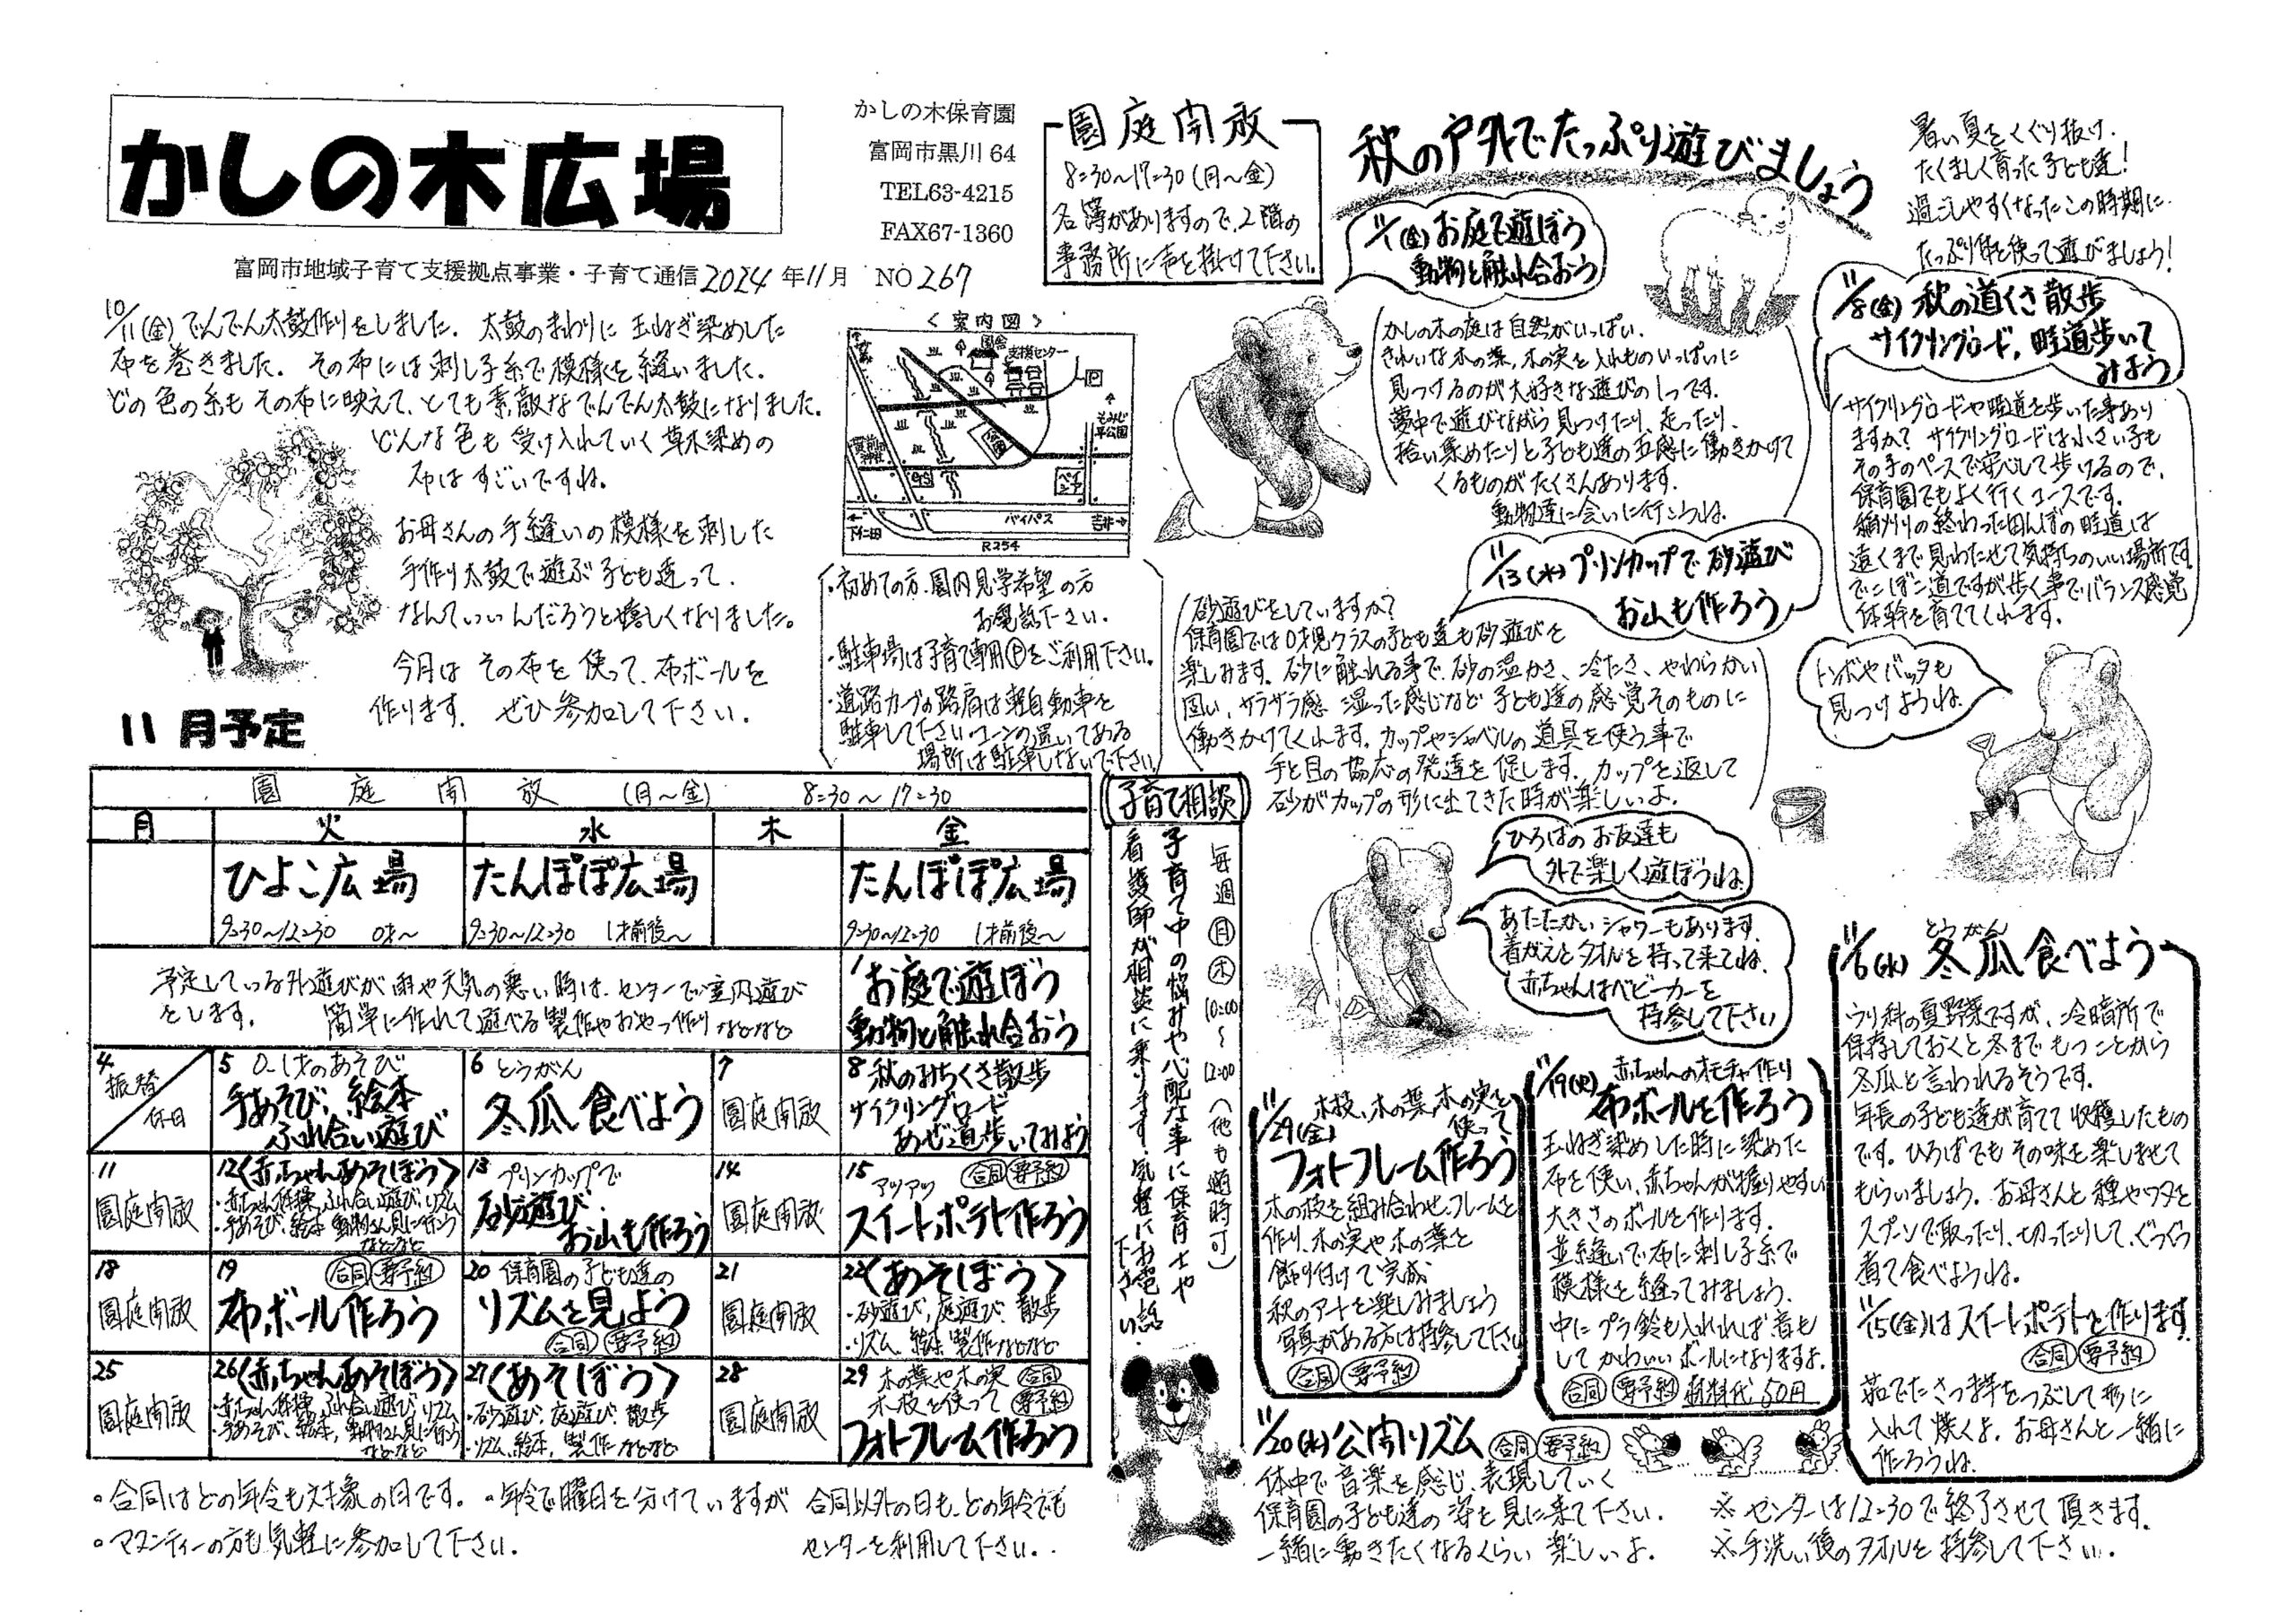 かしの木広場
かしの木保育園
富岡市黒川 64
TEL63-4215
FAX67-1360
富岡市地域子育て支援拠点事業・子育て通信 2024 年 11 月 NO 267
10/11(金) でんでん太鼓作りをしました。太鼓のまわりに 玉ねぎ染めした
布を巻きました。その布には刺し子糸で模様を縫いました。
どの色の糸も その布に映えて、とても素敵なでんでん太鼓になりました。
どんな色も 受け入れていく 草木染めの
布は すごいですね。
お母さんの手縫いの模様を刺した
手作り太鼓で遊ぶ子ども達って、
なんていいんだろうと嬉しくなりました。
今月は その布を 使って 布ボールを
作ります。 ぜひ参加して下さい。
園庭開放
8:30～17:30 (月～金)
名簿がありますので、2階の
事務所に声を掛けて下さい。
＜案内図＞
園舎
支援センター
P
もみじ平公園
貫前神社
バイパス
下仁田
吉井
R254
・初めての方、園内見学希望の方
お電話下さい。
・駐車場は子育て専用Pをご利用下さい。
・道路カーブの路肩は軽自動車を
駐車して下さい。コーンの置いてある
場所は駐車しないで下さい。
秋の戸外でたっぷり遊びましょう
暑い夏をくぐり抜け、
たくましく育った子ども達！
過ごしやすくなったこの時期に、
たっぷり体を使って遊びましょう！
11/1(金) お庭で遊ぼう
動物と触れ合おう
かしの木の庭は自然がいっぱい、
きれいな木の葉、木の実を入れものいっぱいに
見つけるのが大好きな遊びの1つです。
夢中で遊びながら見つけたり、走ったり、
拾い集めたりと子ども達の五感に働きかけて
くるものがたくさんあります。
動物達に会いに行こうね。
11/8(金) 秋の道くさ散歩
サイクリングロード、畦道歩いて
みよう
サイクリングロードや畦道を歩いた事あり
ますか？ サイクリングロードは小さい子も
その子のペースで安心して歩けるので、
保育園でもよく行くコースです。
稲刈りの終わった田んぼの畦道は
遠くまで見わたせて気持ちのいい場所です。
でこぼこ道ですが歩く事でバランス感覚
体幹を育ててくれます。
トンボやバッタも
見つけようね
11/13(水) プリンカップで砂遊び
お山も作ろう
砂遊びをしていますか？
保育園では0才児クラスの子ども達も砂遊びを
楽しみます。砂に触れる事で、砂の温かさ、冷たさ、やわらかい
固い、サラサラ感 湿った感じなど 子ども達の感覚そのものに
働きかけてくれます。カップやシャベルの道具を使う事で
手と目の協応の発達を促します。カップを返して
砂がカップの形に出てきた時が楽しいよ。
ひろばのお友達も
外で楽しく遊ぼうね
あたたかいシャワーもあります。
着がえとタオルを持って来てね。
赤ちゃんはベビーカーを
持参して下さい
11月予定
園庭開放 (月～金) 8:30～17:30
月 火 水 木 金
ひよこ広場 たんぽぽ広場 たんぽぽ広場
9:30～12:30 0才～ 9:30～12:30 1才前後～ 9:30～12:30 1才前後～
予定している外遊びが雨や天気の悪い時は、センターで室内遊び
をします。 簡単に作れて遊べる製作やおやつ作りなどなど
1 お庭で遊ぼう
動物と触れ合おう
4 振替休日
5 0.1才のあそび
手あそび、絵本
ふれ合い遊び
6 とうがん
冬瓜食べよう
7 園庭開放
8 秋のみちくさ散歩
サイクリングロード
あぜ道歩いてみよう
11 園庭開放
12 〈赤ちゃんあそぼう〉
・赤ちゃん体操、ふれ合い遊び、リズム
・手あそび、絵本、動物さん見に行こう
などなど
13 プリンカップで
砂遊び
お山も作ろう
14 園庭開放
15 合同 要予約
アツアツ
スイートポテト作ろう
18 園庭開放
19 合同 要予約
布ボール作ろう
20 保育園の子ども達の
リズムを見よう
合同 要予約
21 園庭開放
22 〈あそぼう〉
・砂遊び、庭遊び、散歩
・リズム、絵本、製作などなど
25 園庭開放
26 〈赤ちゃんあそぼう〉
・赤ちゃん体操、ふれ合い遊び、リズム
・手あそび、絵本、動物さん見に行こう
などなど
27 〈あそぼう〉
・砂遊び、庭遊び、散歩
・リズム、絵本、製作などなど
28 園庭開放
29 木の葉や木の実 合同
木枝を使って 要予約
フォトフレーム作ろう
。合同はどの年令も対象の日です。・年令で曜日を分けていますが 合同以外の日も、どの年令でも
センターを利用して下さい。
。マタニティーの方も気軽に参加して下さい。
子育て相談
毎週 月 木 10:00～12:00 (他も随時可)
子育て中の悩みや心配な事に保育士や
看護師が相談に乗ります。気軽にお電話
下さい
11/29(金) 木枝、木の葉、木の実を
使って
フォトフレーム作ろう
木の枝を組み合わせ、フレームを
作り、木の実や木の葉を
飾り付けて完成
秋のアートを楽しみましょう
写真がある方は持参して下さい
合同 要予約
11/19(火) 赤ちゃんのオモチャ作り
布ボールを作ろう
玉ねぎ染めした時に染めた
布を使い、赤ちゃんが握りやすい
大きさのボールを作ります。
並縫いで布に刺し子糸で
模様を縫ってみましょう。
中にプラ鈴も入れれば音も
してかわいいボールになりますよ。
合同 要予約 材料代 50円
11/6(水) 冬瓜食べよう
とうがん
ウリ科の夏野菜ですが、冷暗所で
保存しておくと冬までもつことから
冬瓜と言われるそうです。
年長の子ども達が育てて収穫したもの
です。ひろばでもその味を楽しませて
もらいましょう。お母さんと種やワタを
スプーンで取ったり、切ったりして、ぐつぐつ
煮て食べようね。
11/15(金)はスイートポテトを作ります。
合同 要予約
茹でたさつま芋をつぶして形に
入れて焼くよ。お母さんと一緒に
作ろうね。
11/20(水) 公開リズム 合同 要予約
体中で音楽を感じ、表現していく
保育園の子ども達の姿を見に来て下さい。
一緒に動きたくなるくらい楽しいよ。
※センターは12:30で終了させて頂きます。
※手洗い後のタオルを持参して下さい。